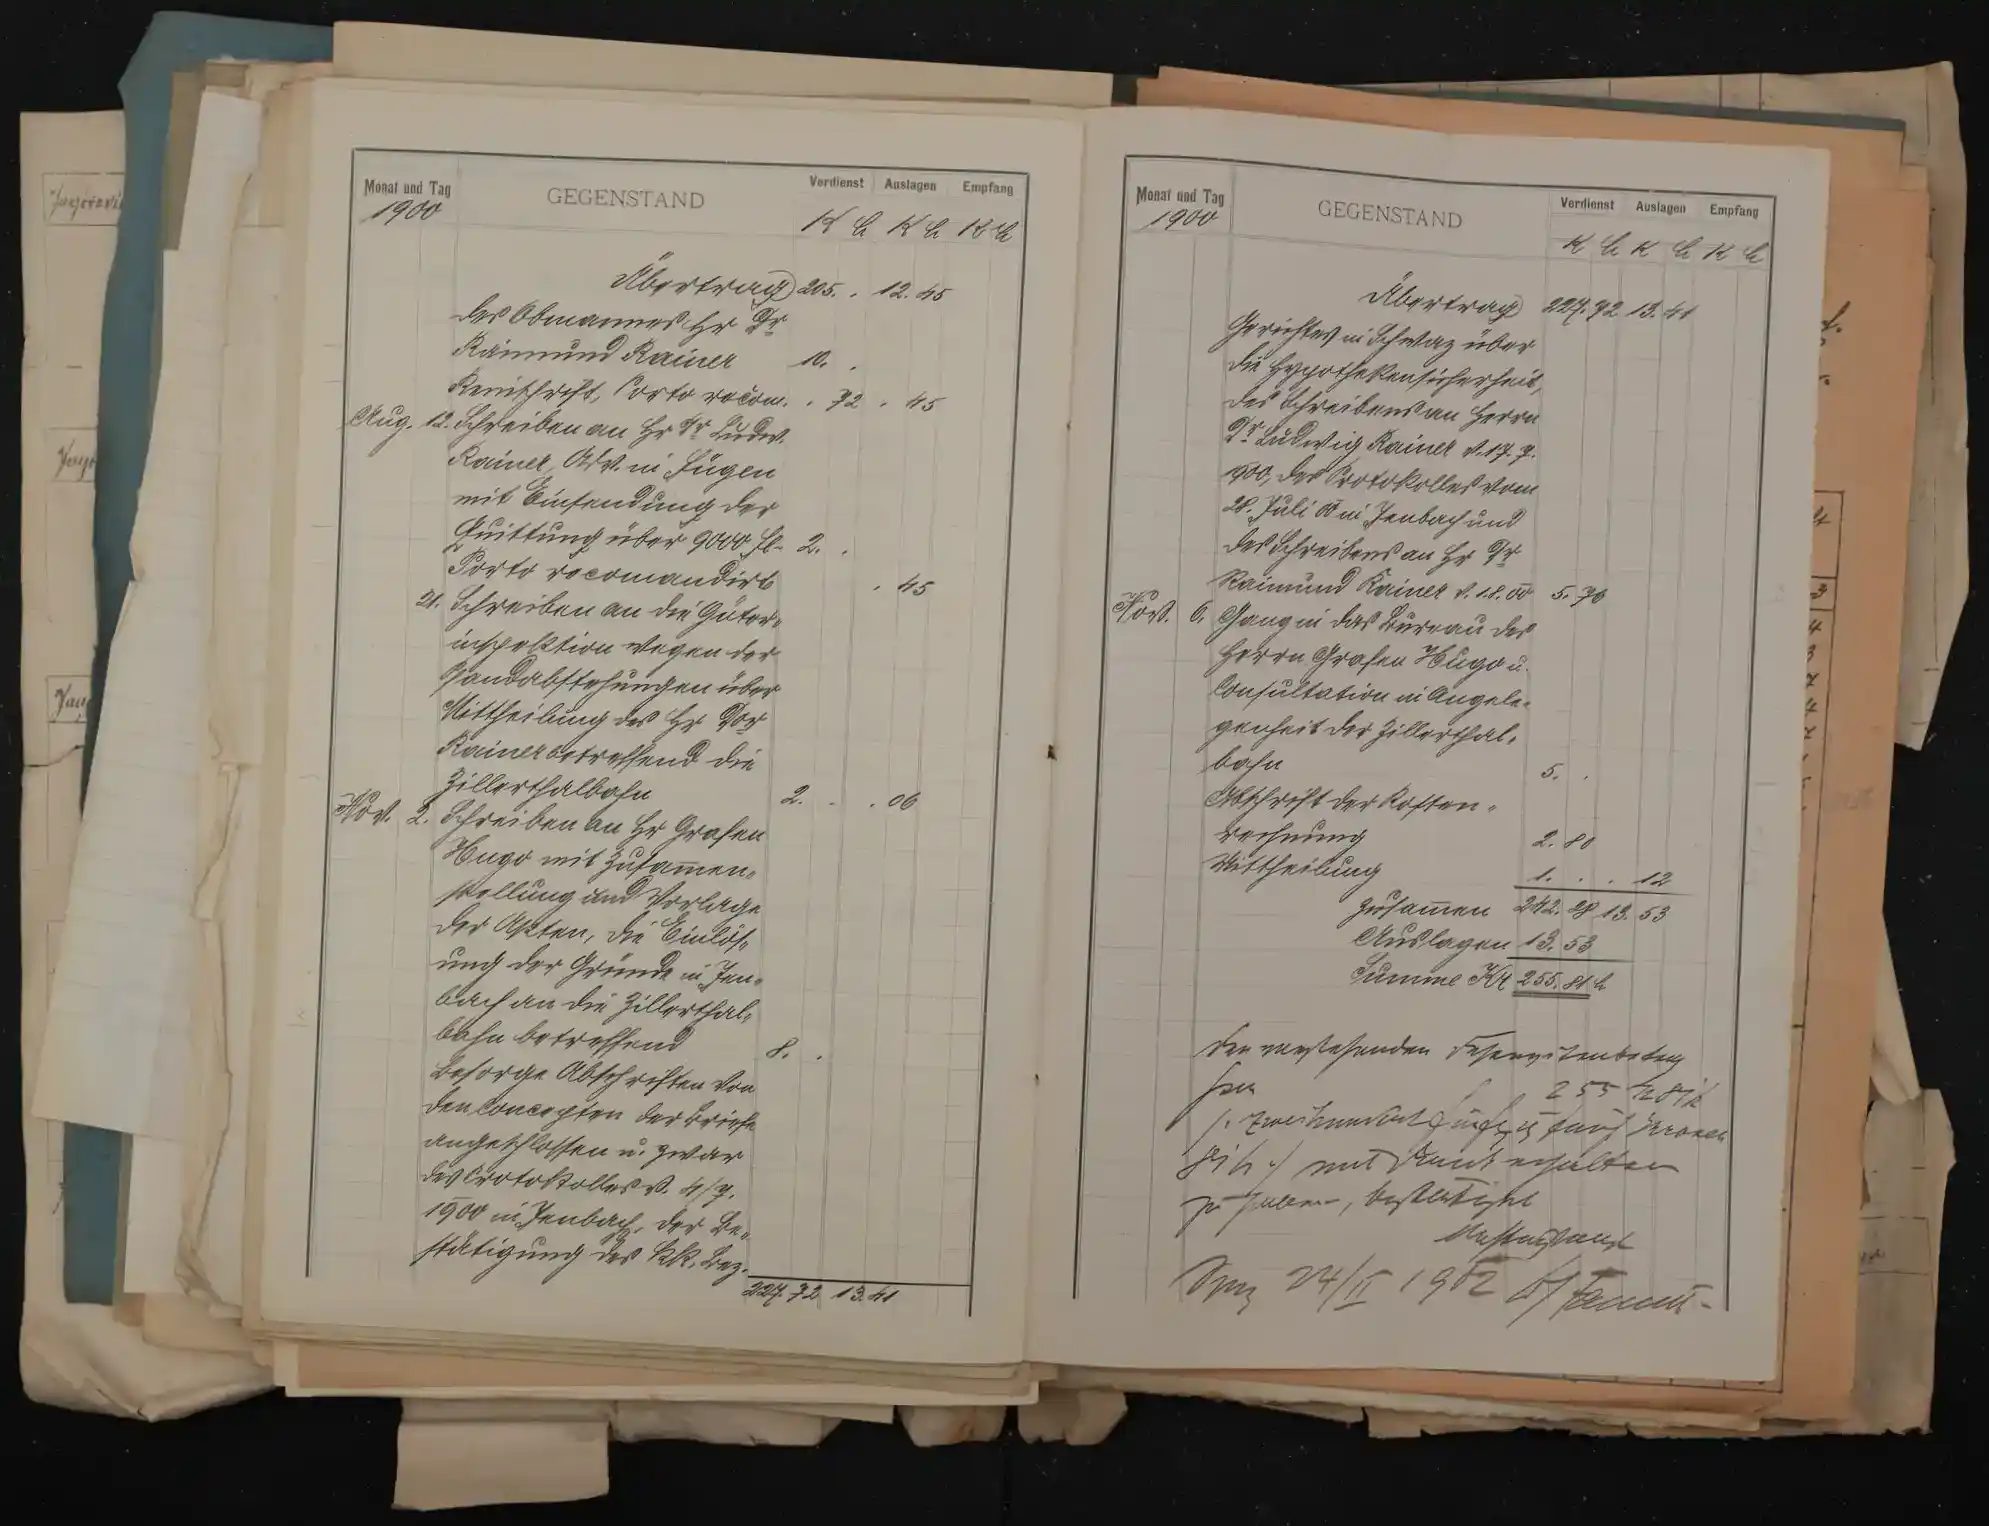 Monat und Tag GEGENSTAND Verdienst Auslagen Empfang
1900 K h K h K h
Übertrag 205. . 12. 45
des Obmannes Hr Dr
Raimund Rainer 10. .
Reinschrift, Porto recom. . 72 . 45
Aug. 12. Schreiben an Hr Dr Ludw.
Rainer, Adv. in Fügen
mit Einsendung der
Quittung über 9000 fl. 2. .
Porto recomandirt . 45
21. Schreiben an die Güter-
inspektion wegen der
Pfandabstehungen über
Mittheilung des Hr Dor
Rainer betreffend die
Zillerthalbahn 2. . . 06
Nov. 2. Schreiben an Hr Grafen
Hugo mit Zusam̅en-
stellung und Vorlage
der Akten, die Einlös-
ung der Gründe in Jen-
bach an die Zillerthal-
bahn betreffend 8. .
Besorge Abschriften von
den Concepten der Briefe
angeschlossen u. zwar
des Protokolles v. 4/7.
1900 in Jenbach, der Be-
stätigung des k.k. Bez.
227. 72 13. 41
Monat und Tag GEGENSTAND Verdienst Auslagen Empfang
1900 K h K h K h
Übertrag 227. 72 13. 41
Gerichtes in Schwaz über
die Hypothekensicherheit,
des Schreibens an Herrn
Dr Ludwig Rainer v. 17. 7.
900, des Protokolles vom
28. Juli 00 in Jenbach und
des Schreibens an Hr Dr
Raimund Rainer v. 1.8.00 5. 76
Nov. 6. Gang in das Bureau des
Herrn Grafen Hugo u.
Consultation in Angele-
genheit der Zillerthal-
bahn 5. .
Abschrift der Kosten-
rechnung 2. 80
Mittheilung 1. . . 12
Zusam̅en 242. 28 13. 53
Auslagen 13. 53
Summe Kr 255. 81 h
Den vorstehenden
per 255 K 81 h
/: zweihundert fünfzig fünf Kronen
81 h :/ mit Dank erhalten
zu haben, bestätiget
24/II 1902